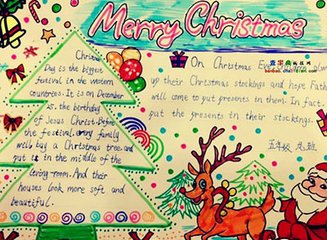 Merry Christmas
Christmas
Day is the biggest
festival in the western
countries. It is on December
is the birthday
of Jesus Christ. Before
the festival, every family
will buy a Christmas tree and
put it in the middle of the
living-room. And their
houses look more soft and
beautiful.
On Christmas Eve
up their Christmas stockings and hope Father
will come to put presents in them. In fact,
put the presents in their stockings.